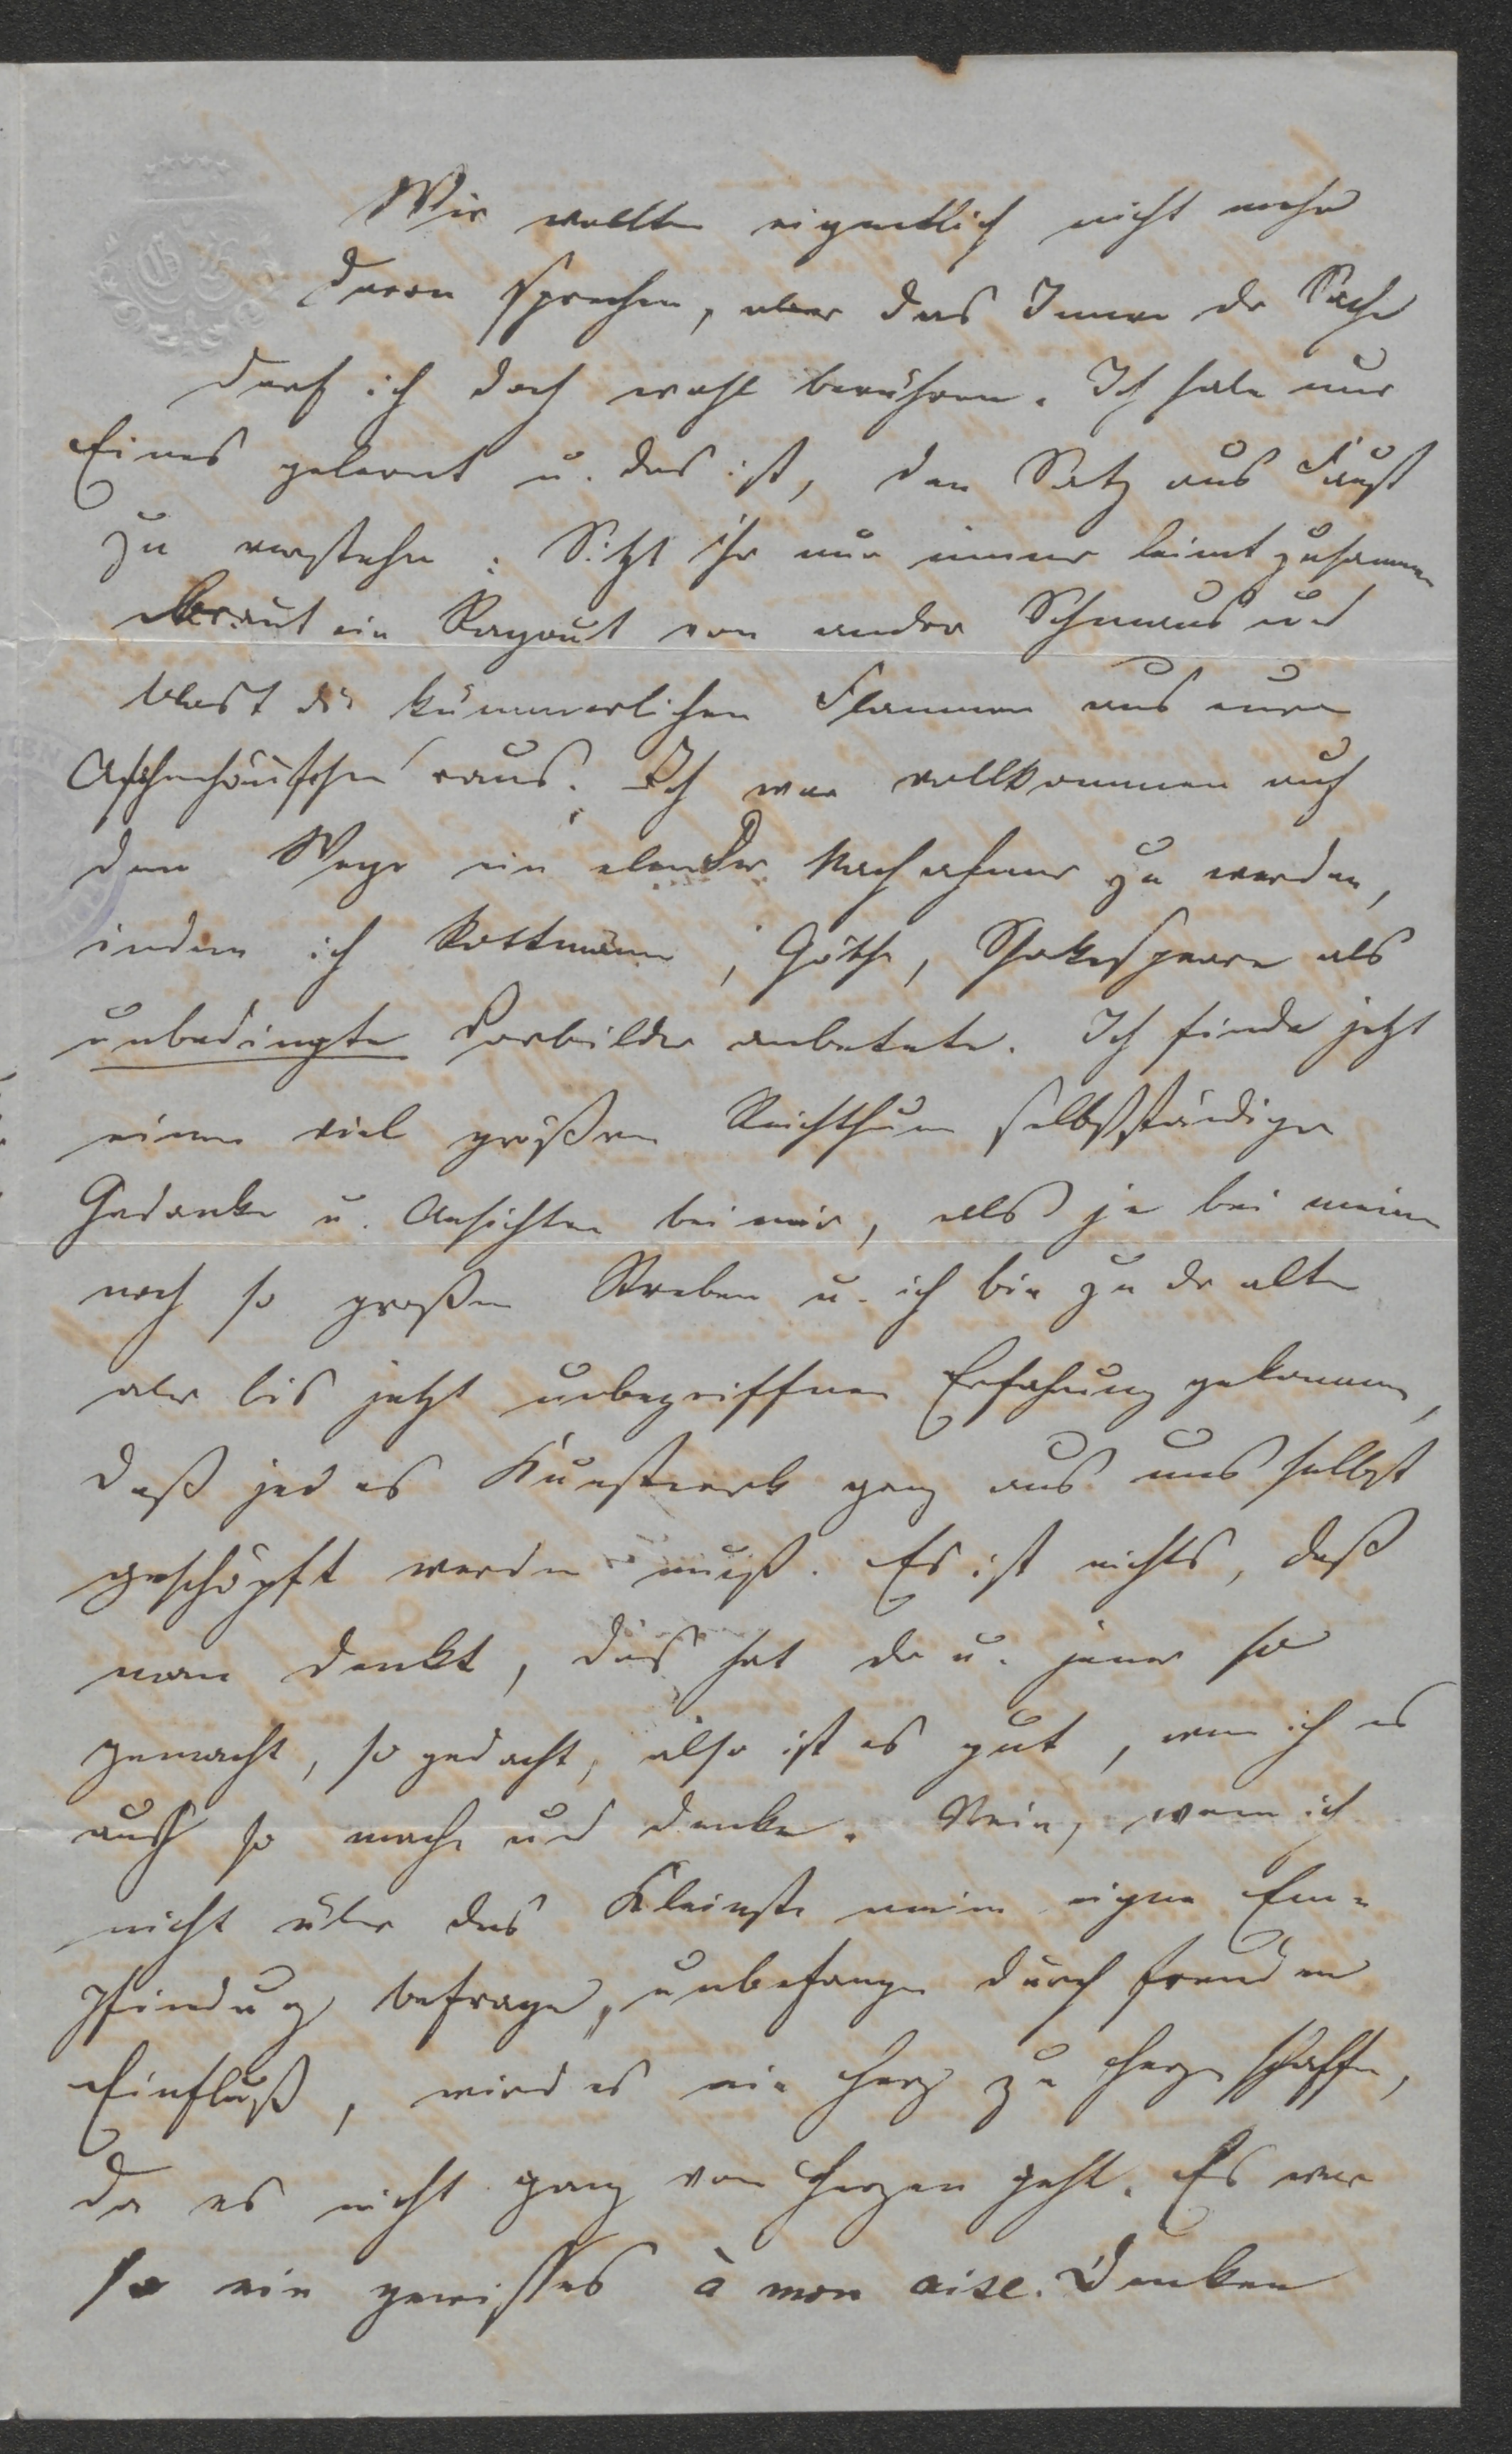 Wir wollten eigentlich nicht mehr
davon sprechen, aber das Innere der Sache
darf ich doch wohl berühren. Ich habe nur
Eines gelernt u. das ist, den Satz aus Faust
zu verstehen: Sitzt ihr nur immer leimt zusammen
Braut ein Ragout von andrer Schmaus und
blast die kümmerlichen Flammen aus eurem
Aschenhäufchen raus. Ich war vollkommen auf
dem Wege ein elender Nachahmer zu werden,
indem ich Rottmann, Göthe, Shakespeare als
unbedingte Vorbilder anbetete. Ich finde jetzt
einen viel größren Reichthum selbstständiger
Gedanken u. Ansichten bei mir, als je bei meinem
noch so großen Streben u. ich bin zu der alten
aber bis jetzt unbegriffnen Erfahrung gekommen,
daß jedes Kunstwerk ganz aus uns selbst
geschöpft werden muß. Es ist nichts, daß
man denkt, das hat der u. jener so
gemacht, so gedacht, also ist es gut, wenn ich es
auch so mache und denke. Nein, wenn ich
nicht über das Kleinste meine eigne Em-
pfindung befrage, unbefangen durch fremden
Einfluß, wird es nie Herz zu Herzen schaffen,
da es nicht ganz von Herzen geht. Es war
so ein gewisses à mon aise. Denken